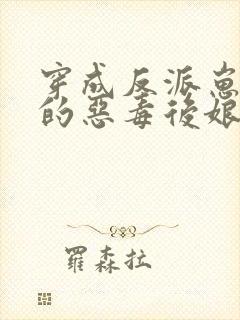 穿成反派崽
的惡毒後娘
羅森拉